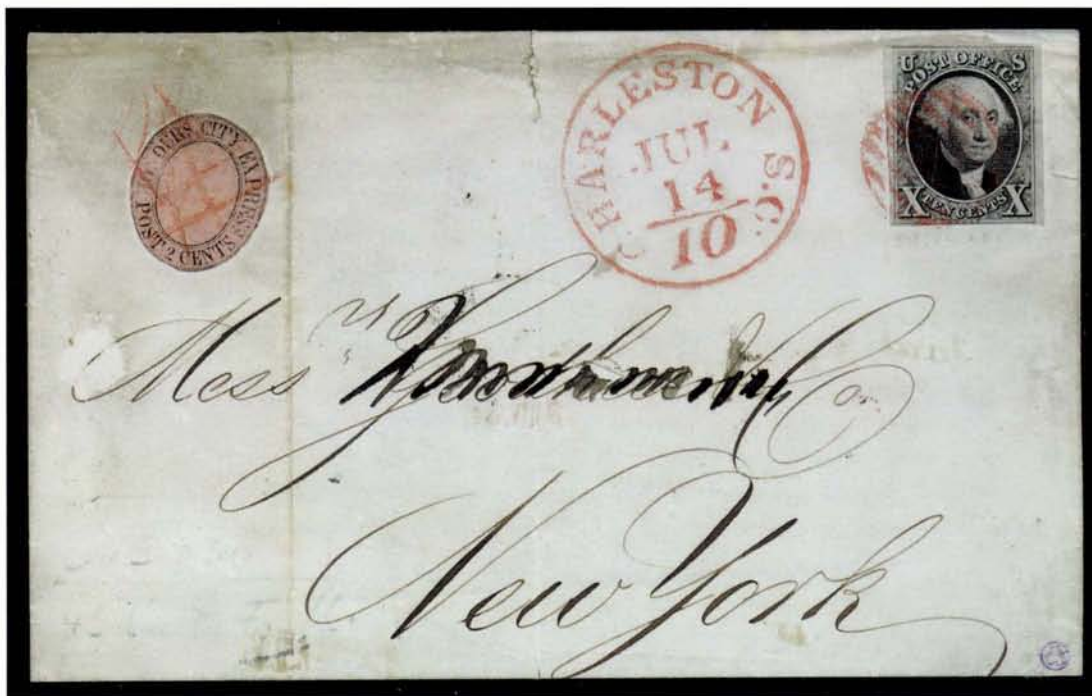 CITY EXPRESS POST 2 CENTS
CHARLESTON S.C.
JUL
14
10
U S
POST OFFICE
X TEN CENTS X
Mess rs & Co
New York